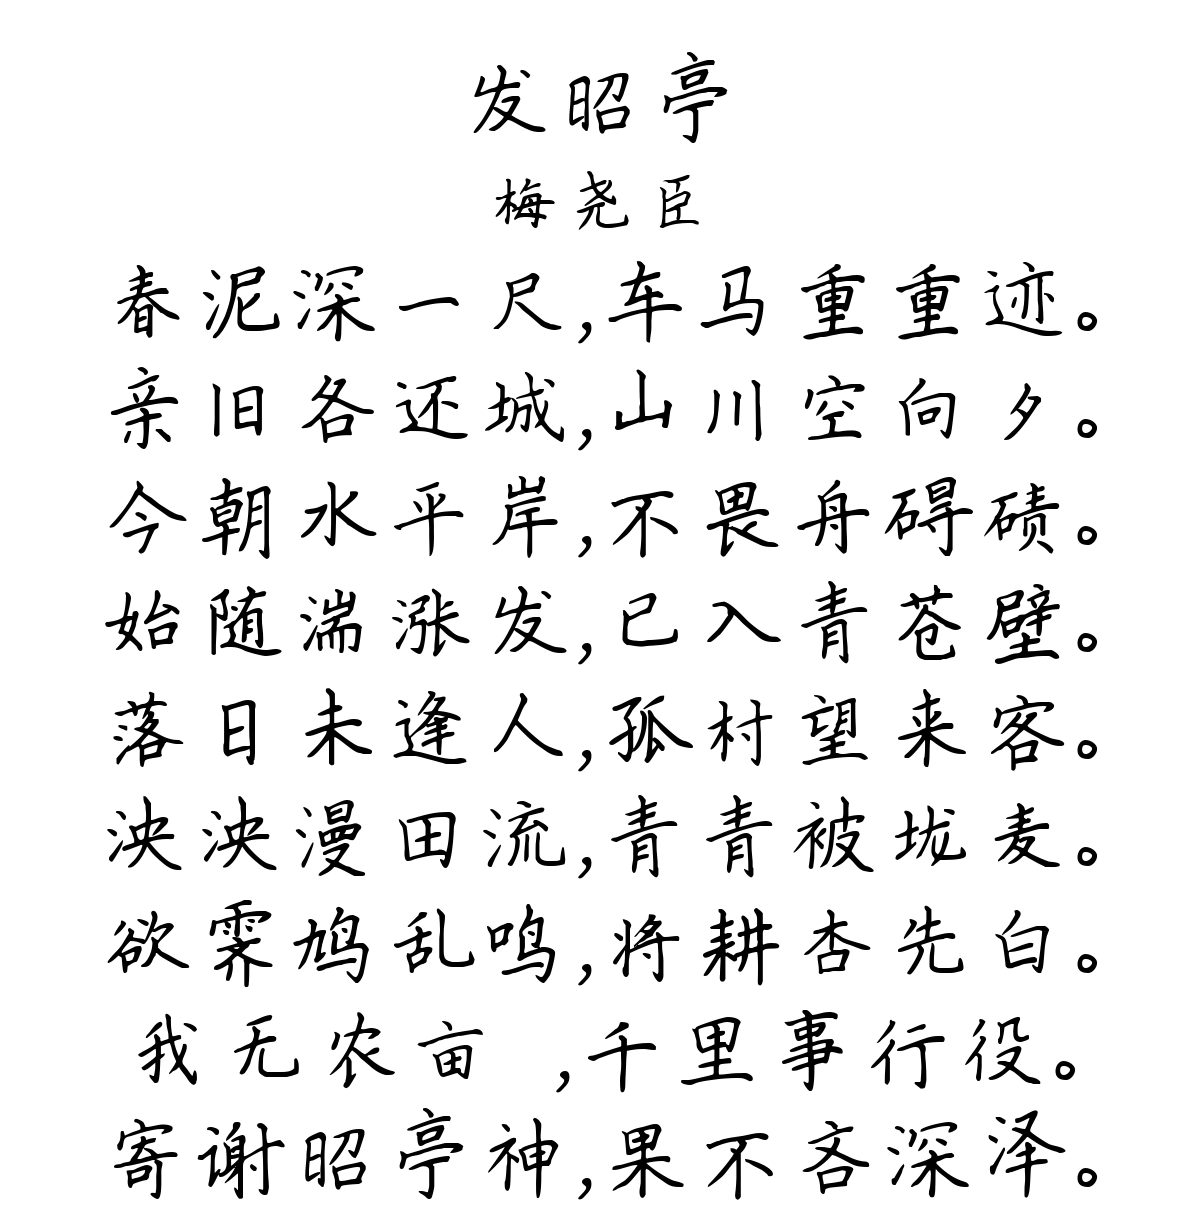 发昭亭
梅尧臣
春泥深一尺,车马重重迹。
亲旧各还城,山川空向夕。
今朝水平岸,不畏舟碍碛。
始随湍涨发,已入青苍壁。
落日未逢人,孤村望来客。
泱泱漫田流,青青被垅麦。
欲霁鸠乱鸣,将耕杏先白。
我无农亩 ,千里事行役。
寄谢昭亭神,果不吝深泽。